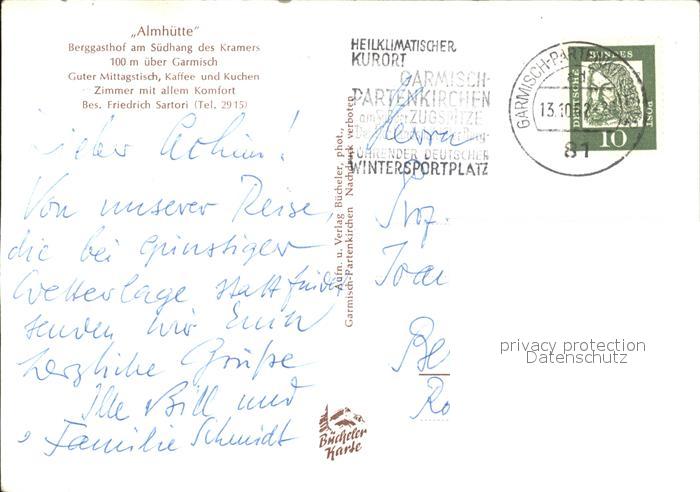 „Almhütte"
Berggasthof am Südhang des Kramers
100 m über Garmisch
Guter Mittagstisch, Kaffee und Kuchen
Zimmer mit allem Komfort
Bes. Friedrich Sartori (Tel. 2915)
Lieber Achim!
Von unserer Reise,
die bei günstiger
Wetterlage stattfindet
senden wir Euch
herzliche Grüße
Ille Bill und
Familie Schmidt
Aufn. u. Verlag Bücheler, phot.,
Garmisch-Partenkirchen Nachdruck verboten
Bücheler
Karte
HEILKLIMATISCHER
KURORT
GARMISCH-
PARTENKIRCHEN
ZUGSPITZE
FÜHRENDER DEUTSCHER
WINTERSPORTPLATZ
GARMISCH-PARTENKIRCHEN
13.10.62
81
DEUTSCHE
BUNDES
POST
10
Herrn
Be
Ro
privacy protection
Datenschutz